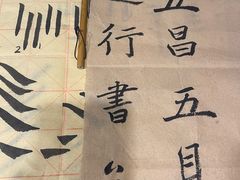 五昌五月
行書
2